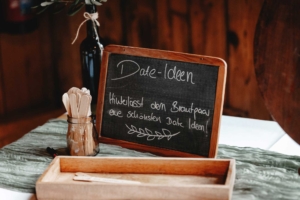 Date-Ideen
Hinterlasst dem Brautpaar
eure schönsten Date Ideen!